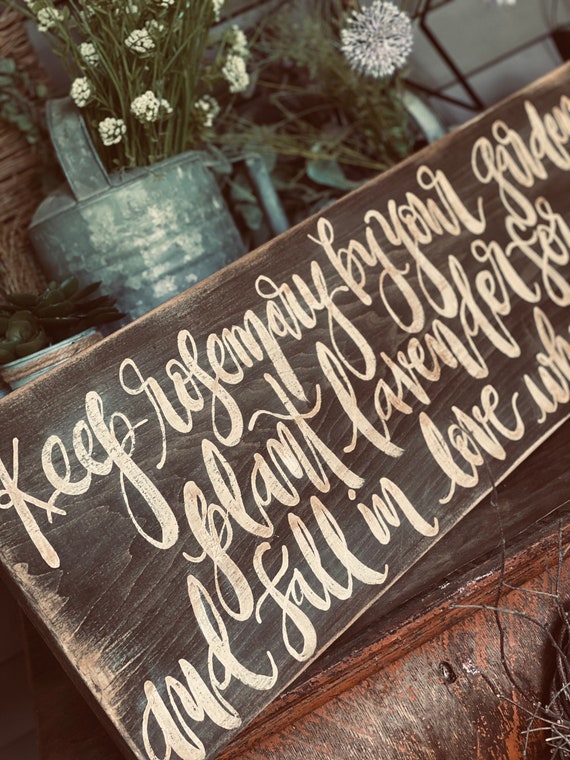 Keep rosemary by your garden
plant lavender for
and fall in love wh